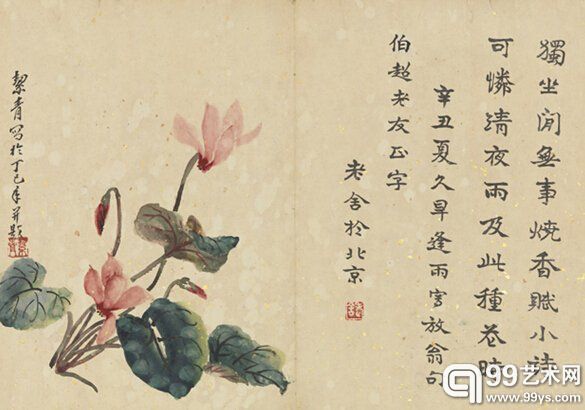 獨坐閒無事燒香賦小詩
可憐清夜雨及此種花時
辛丑夏久旱逢雨寫放翁句
伯超老友正字
老舍於北京
絜青寫於丁巳年并題
99艺术网
www.99ys.com